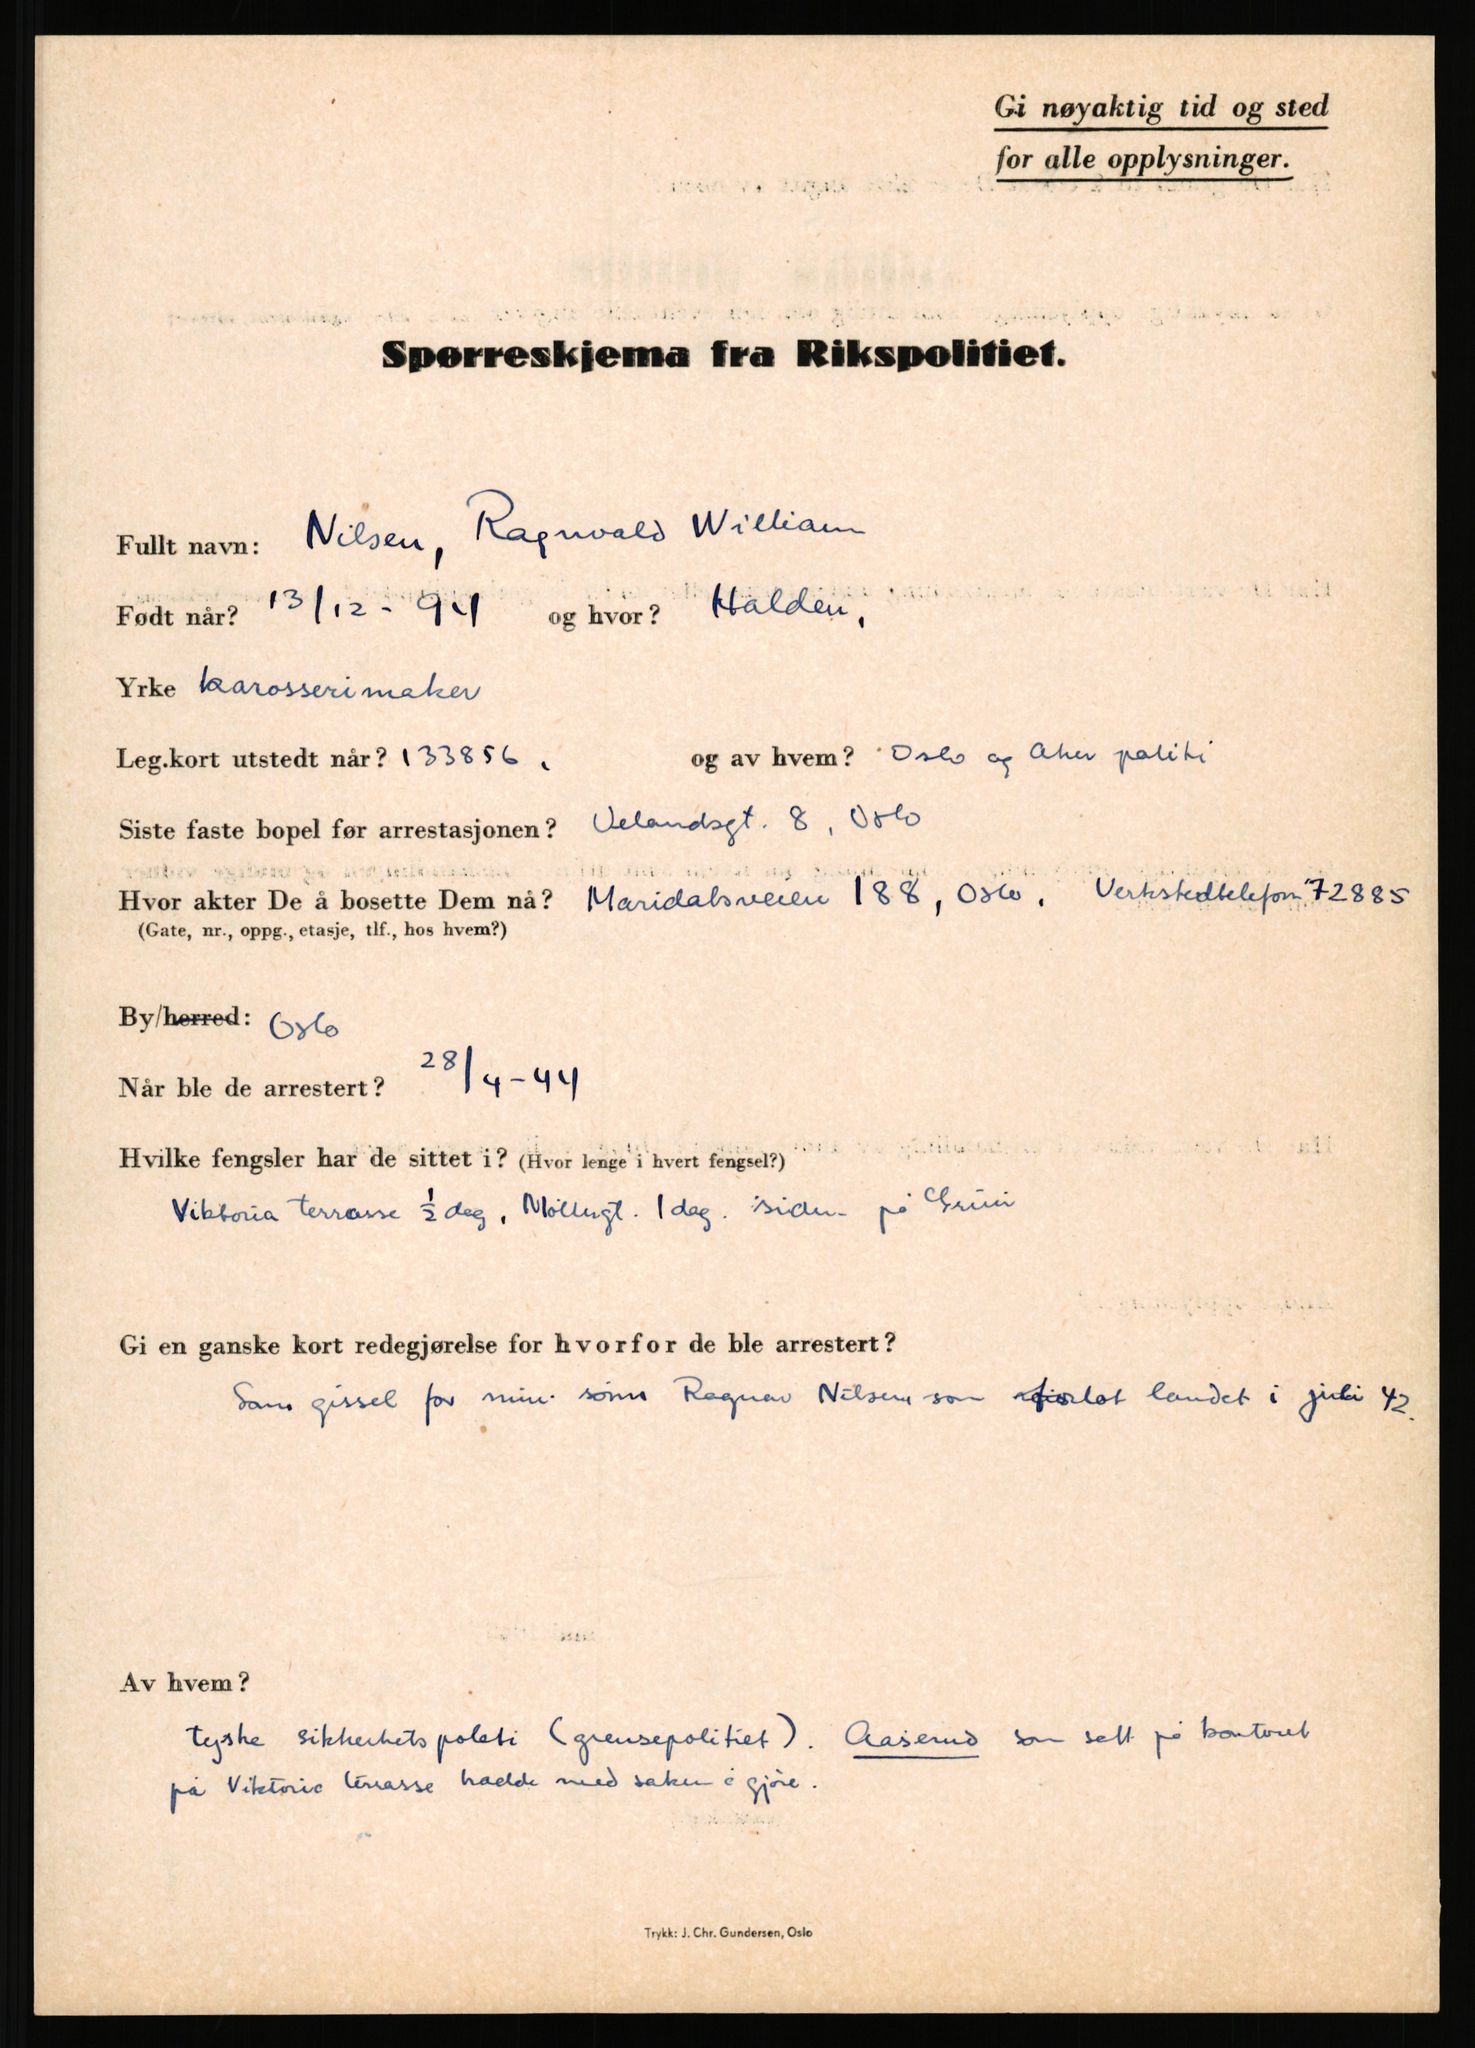 Gi nøyaktig tid og sted
for alle opplysninger.
Spørreskjema fra Rikspolitiet.
Fullt navn: Nilsen, Ragnvald William
Født når? 13/12 - 94 og hvor? Halden,
Yrke karosserimaker
Leg.kort utstedt når? 133856. og av hvem? Oslo og Aker politi
Siste faste bopel før arrestasjonen? Velandsgt. 8, Oslo
Hvor akter De å bosette Dem nå? Maridalsveien 188, Oslo. Verkstedtelefon 72885
(Gate, nr., oppg., etasje, tlf., hos hvem?)
By/herred: Oslo
Når ble de arrestert? 28/4-44
Hvilke fengsler har de sittet i? (Hvor lenge i hvert fengsel?)
Viktoria terrasse ½ dag, Møllergt. 1 dag. siden på Grini
Gi en ganske kort redegjørelse for hvorfor de ble arrestert?
Som gissel for min sønn Ragnar Nilsen som forlot landet i juli 42.
Av hvem?
tyske sikkerhetspoliti (grensepolitiet). Aaserud som satt på kontoret
på Viktoria terrasse hadde med saken å gjøre.
Trykk: J. Chr. Gundersen, Oslo